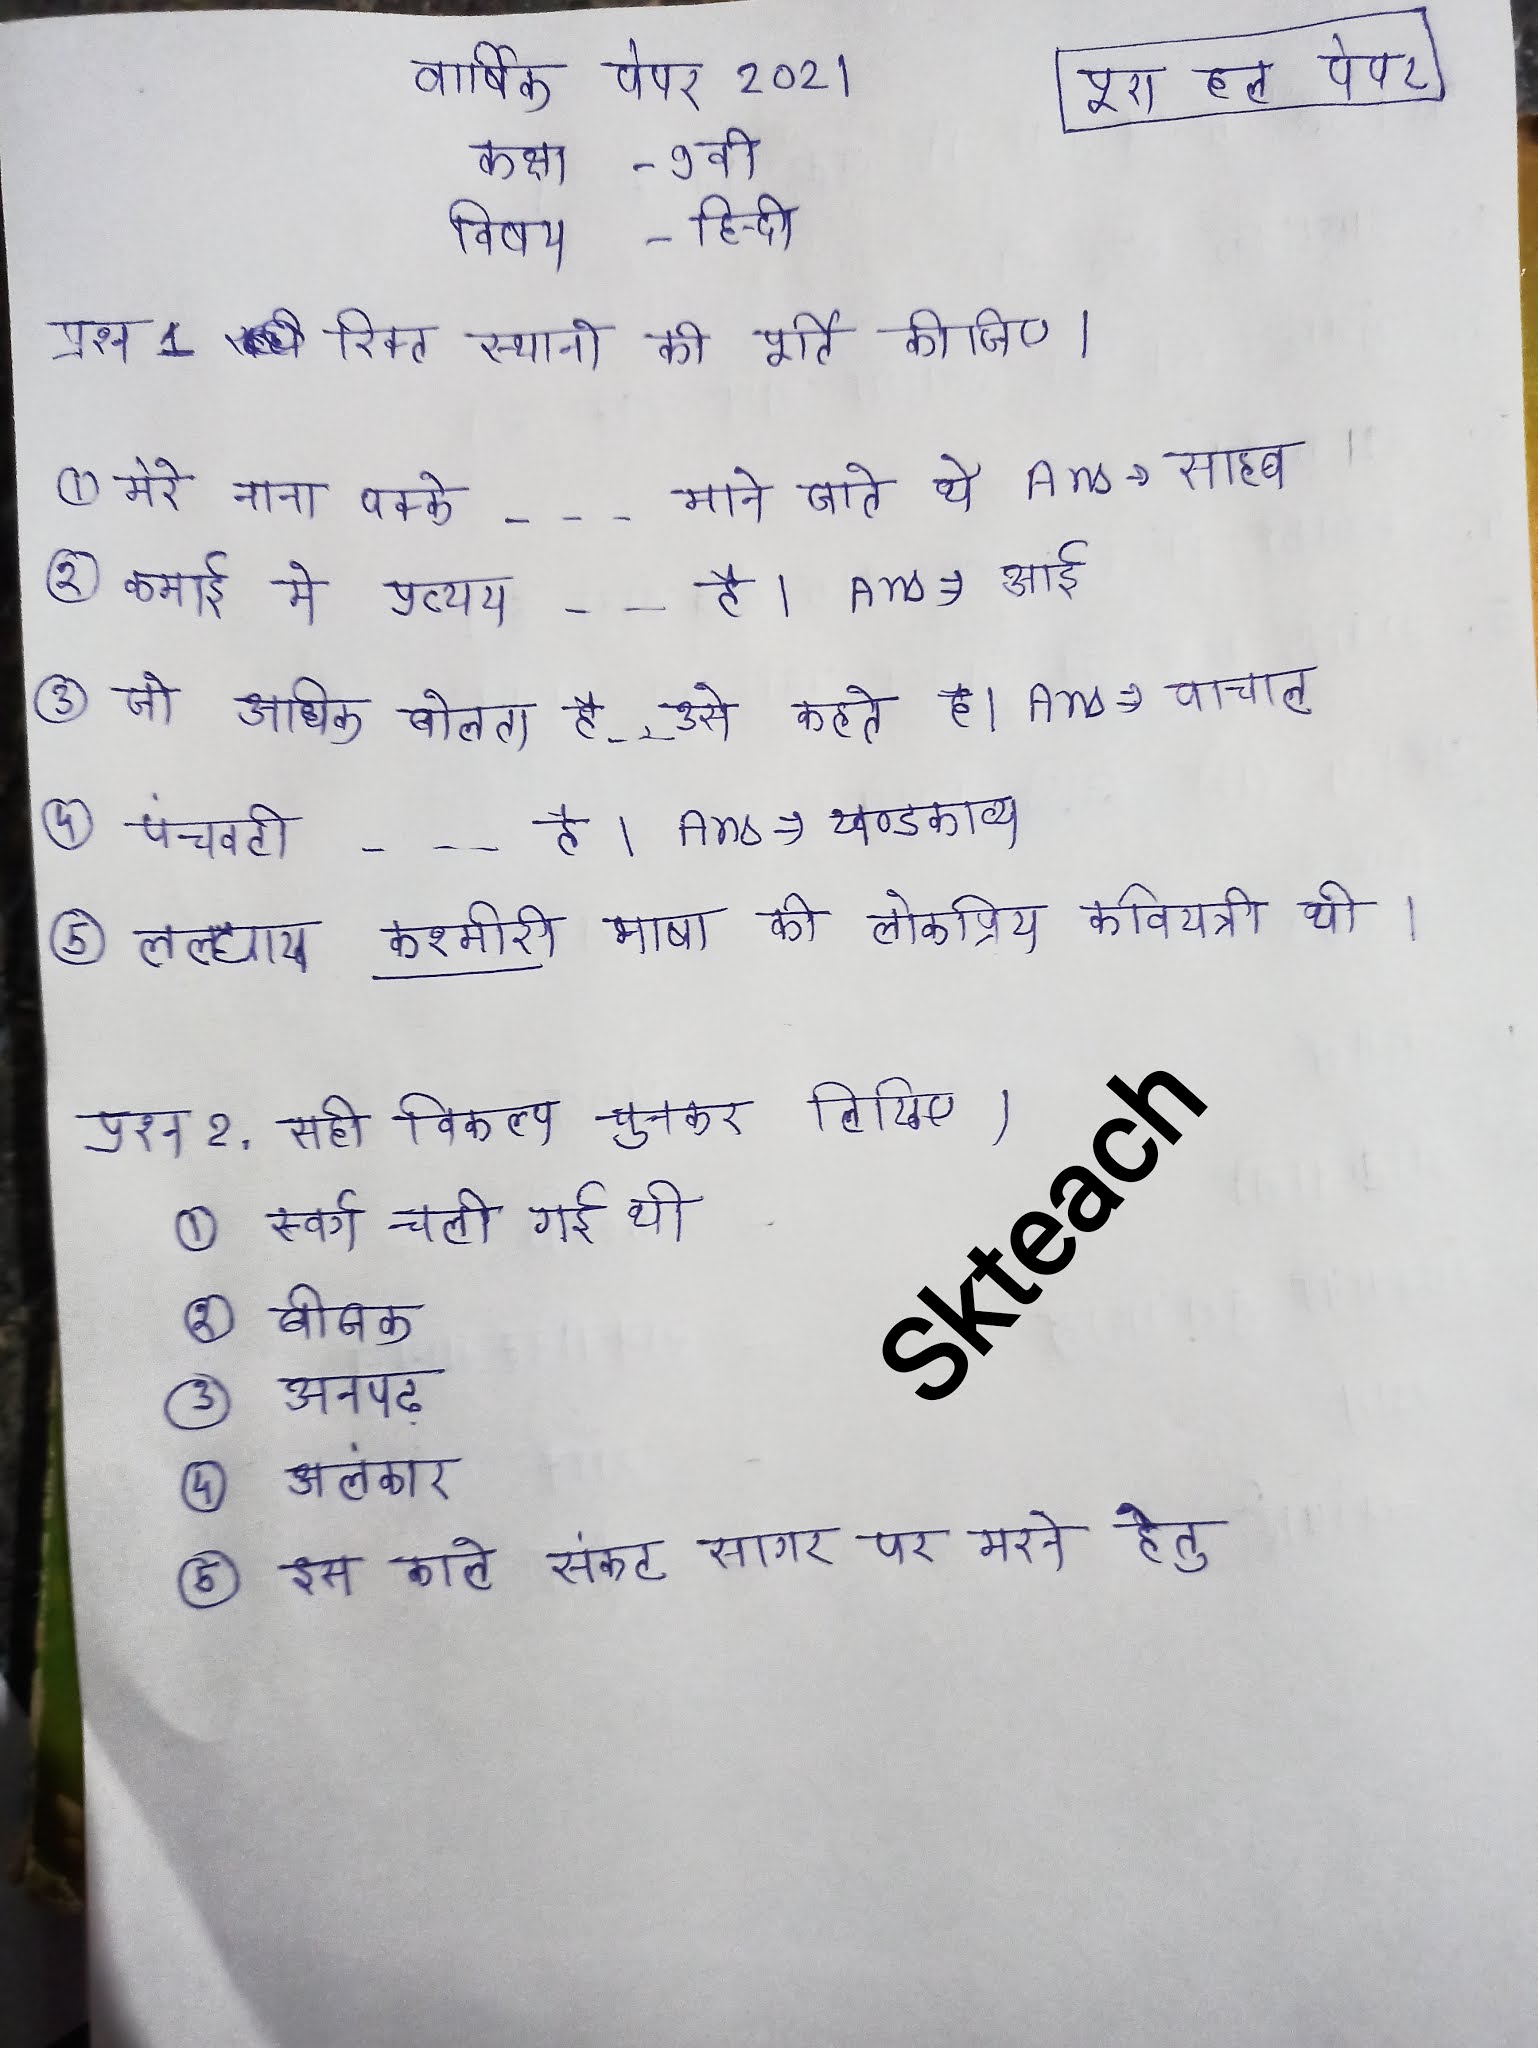 वार्षिक पेपर 2021
पूरा हल पेपर
कक्षा - 9वी
विषय - हिन्दी
प्रश्न 1 रिक्त स्थानो की पूर्ति कीजिए।
① मेरे नाना पक्के - - - माने जाते थे Ans→ साहब
② कमाई मे प्रत्यय - - है। Ans⇒ आई
③ जो अधिक बोलता है - - उसे कहते है। Ans⇒ वाचाल
④ पंचवटी - - - है। Ans⇒ खण्डकाव्य
⑤ लल्द्याय कश्मीरी भाषा की लोकप्रिय कवियत्री थी।
प्रश्न 2. सही विकल्प चुनकर लिखिए।
① स्वर्ग चली गई थी
② बीजक
③ अनपढ़
④ अलंकार
⑤ इस काले संकट सागर पर मरने हेतु
Skteach